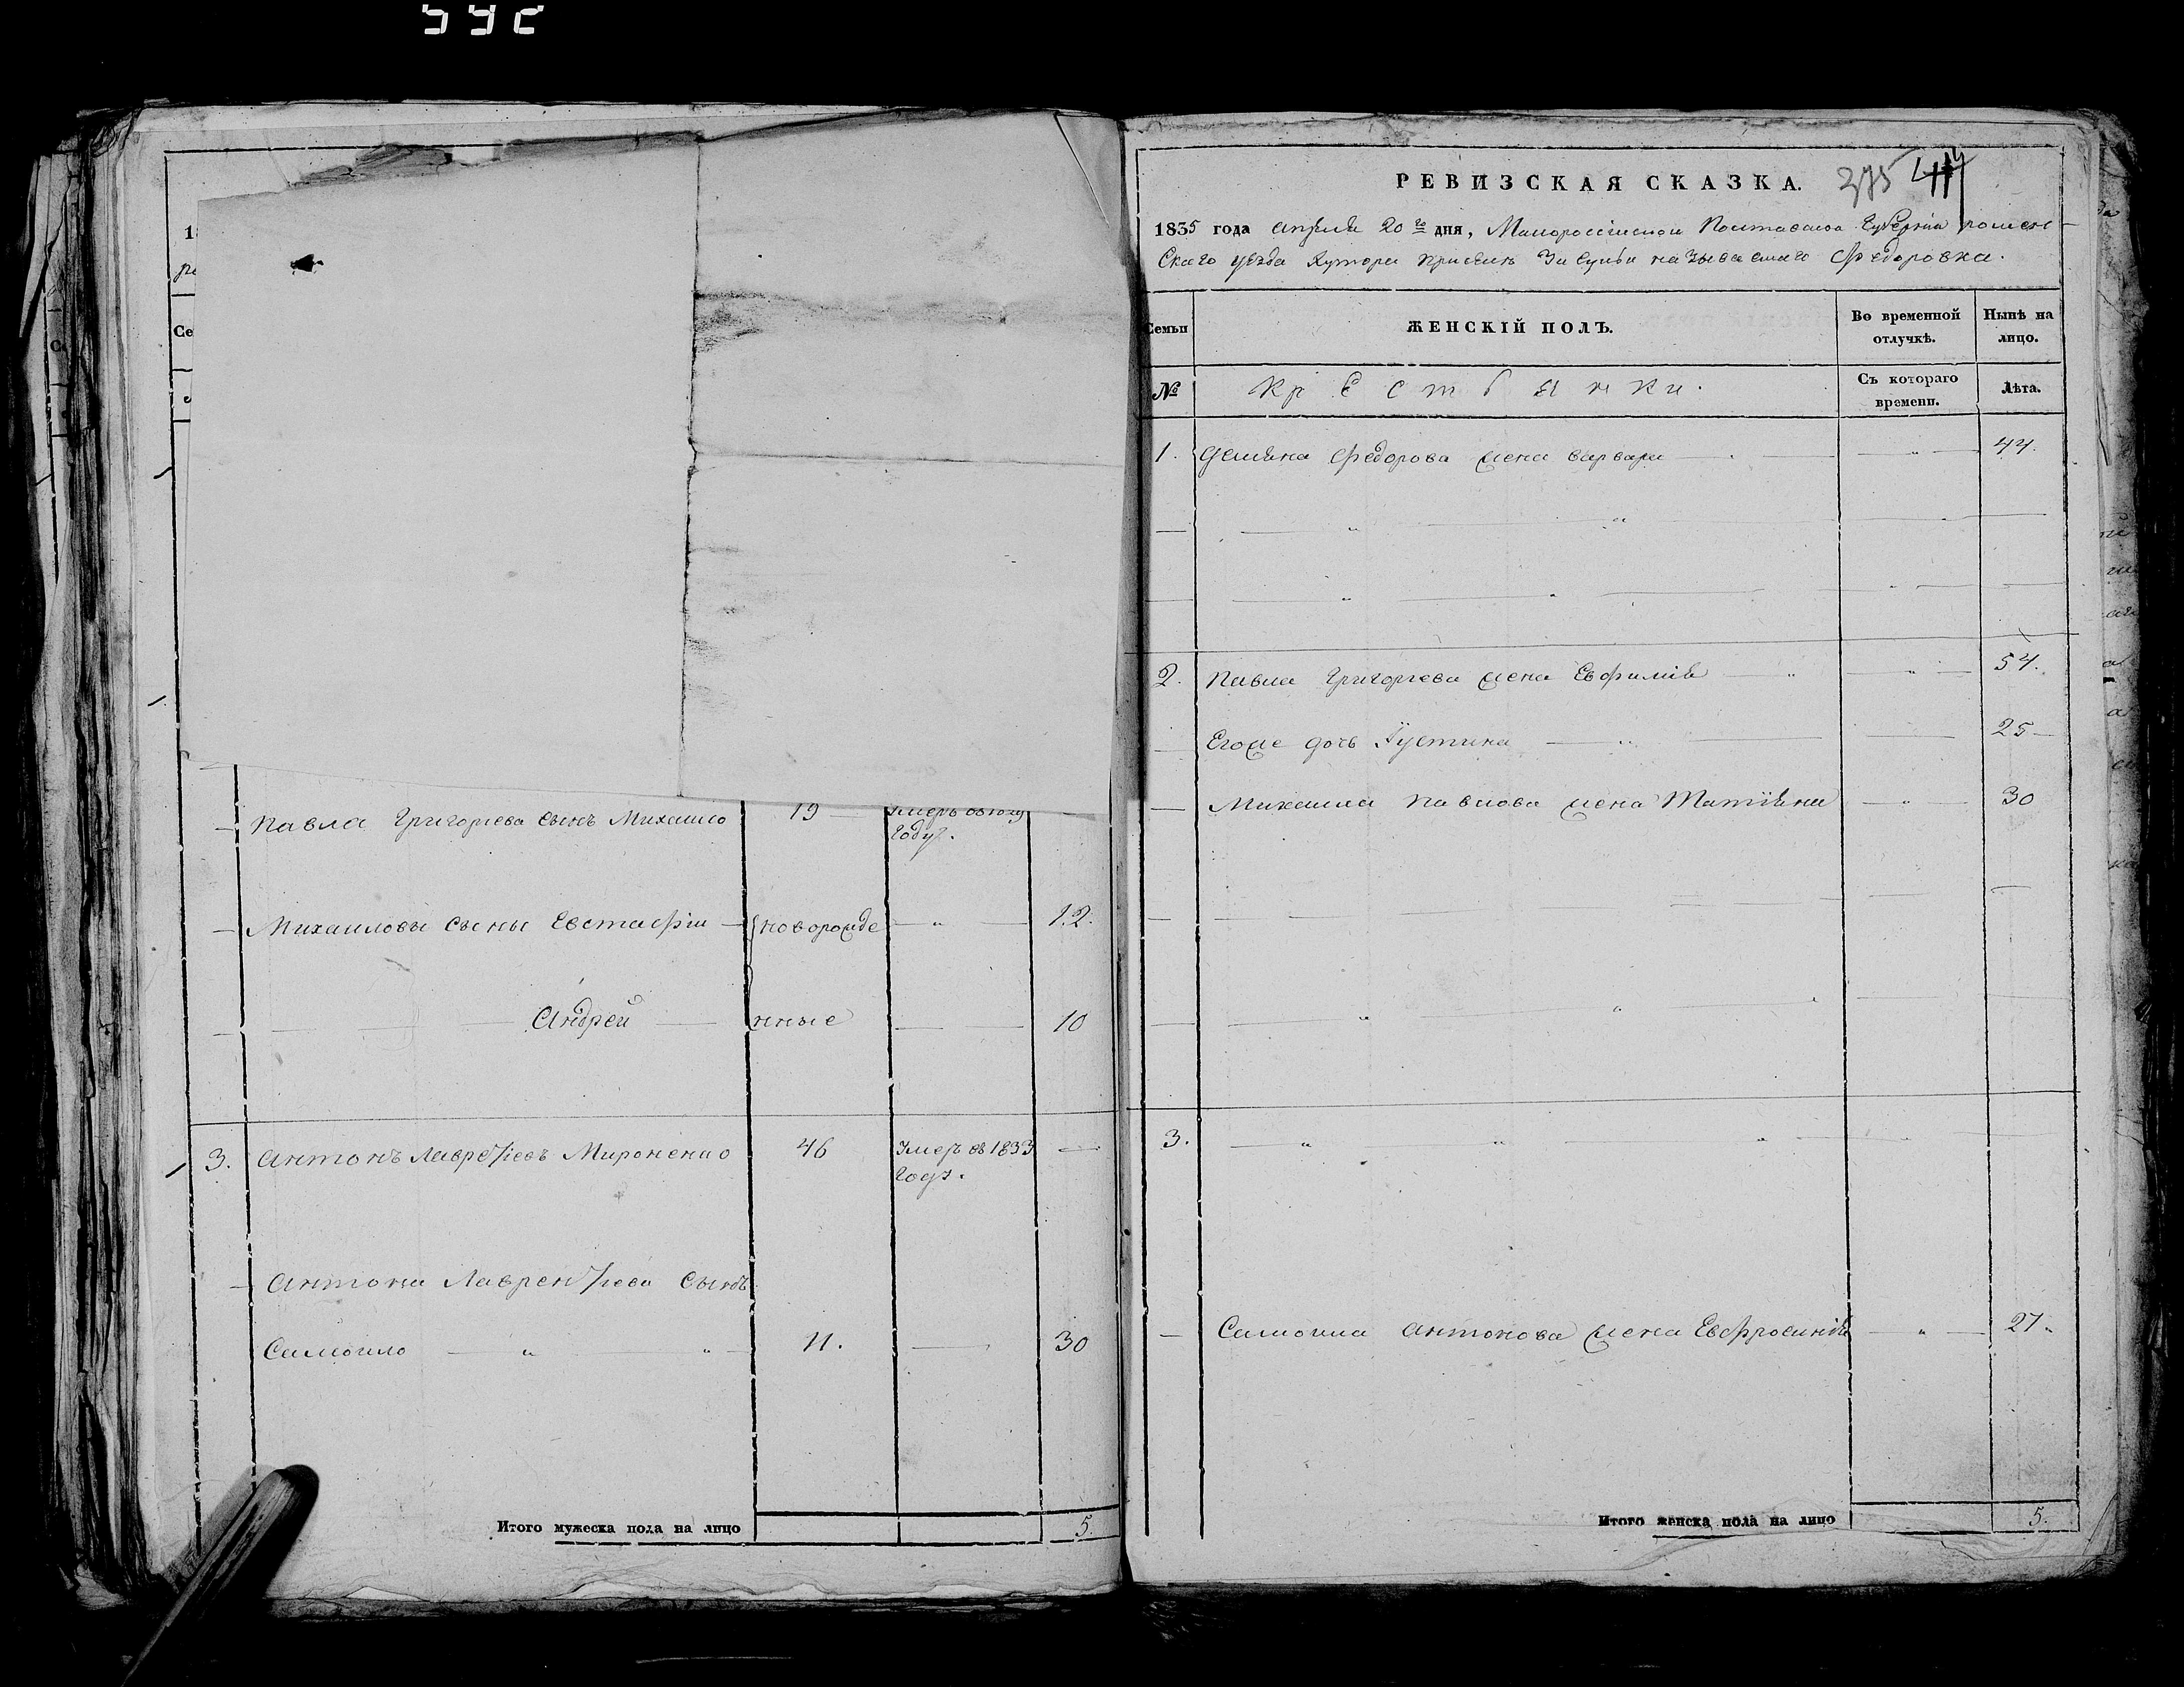 592
1
Се
Павла Григорьева сынъ Михайло 19 Умеръ
году.
Михайловы сыны Евстафій новорожде 12.
Андрей нные 10
3. Антонъ Лаврентіевъ Мироненко 46 Умеръ въ 1833
Году.
Антона Лаврентіева Сынъ
Самойло 11. 30
Итого мужеска пола на лицо 5.
РЕВИЗСКАЯ СКАЗКА. 375
1835 года апреля 20 го дня, Малороссійской Полтавской Губерніи ромен-
скаго уезда Хутора при называемаго Федоровка.
Семьи ЖЕНСКІЙ ПОЛЪ. Во временной отлучкѣ. Нынѣ на лицо.
№ Крестьянки. Съ котораго времени. Лѣта.
1. Демяна Федорова жена Варвара 44.
2. Павла Григорьева жена Евфимія 54.
Егоже дочь Іустина 25
Михаила Павлова жена Татіяна 30
3.
Самойла Антонова жена Евфросинія 27.
Итого женска пола на лицо 5.